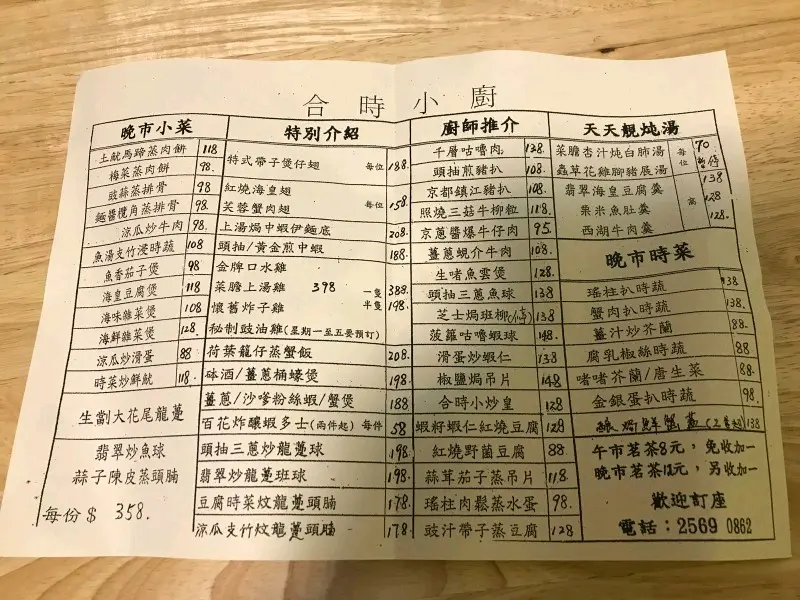 合時小廚
晚市小菜
土魷馬蹄蒸肉餅 118
梅菜蒸肉餅 98.
豉蒜蒸排骨 98
麵醬欖角蒸排骨 98.
涼瓜炒牛肉 98.
魚湯支竹浸時蔬 108
魚香茄子煲 98
海皇豆腐煲 118
海味雜菜煲 108
海鮮雜菜煲 128
涼瓜炒滑蛋 88
時菜炒鮮魷 118.
生劏大花尾龍躉
翡翠炒魚球
蒜子陳皮蒸頭腩
每份$ 358.
特別介紹
特式帶子煲仔翅 每位 188.
紅燒海皇翅
芙蓉蟹肉翅 每位 158.
上湯焗中蝦伊麵底 208.
頭抽/黃金煎中蝦 188
金牌口水雞
菜膽上湯雞 398 一隻 388.
懷舊炸子雞 半隻 198.
秘制豉油雞(星期一至五要預訂)
荷葉籠仔蒸蟹飯 208.
砵酒/薑蔥桶蠔煲 198.
薑蔥/沙嗲粉絲蝦/蟹煲 188
百花炸釀蝦多士(兩件起) 每件 58
頭抽三蔥炒龍躉球 198
翡翠炒龍躉班球 198.
豆腐時菜炆龍躉頭腩 178.
涼瓜支竹炆龍躉頭腩 178.
廚師推介
千層咕嚕肉 138.
頭抽煎豬扒 108.
京都鎮江豬扒 108.
照燒三菇牛柳粒 118.
京蔥醬爆牛仔肉 95.
薑蔥蜆介牛肉 108.
生啫魚雲煲 128.
頭抽三蔥魚球 138
芝士焗班柳 138
菠蘿咕嚕蝦球 148.
滑蛋炒蝦仁 138
椒鹽焗吊片 148
合時小炒皇 128
蝦籽蝦仁紅燒豆腐 128
紅燒野菌豆腐 88
蒜茸茄子蒸吊片 118.
瑤柱肉鬆蒸水蛋 98.
豉汁帶子蒸豆腐 128
天天靚炖湯
菜膽杏汁炖白肺湯 每位 70
蟲草花雞腳豬展湯 暫停
翡翠海皇豆腐羹 138
粟米魚肚羹 窩 128
西湖牛肉羹 128.
晚市時菜
瑤柱扒時蔬 138
蟹肉扒時蔬 138.
薑汁炒芥蘭 88.
腐乳椒絲時蔬 88
啫啫芥蘭/唐生菜 88.
金銀蛋扒時蔬 98.
138
午市茗茶8元，免收加一
晚市茗茶12元，另收加一
歡迎訂座
電話：2569 0862